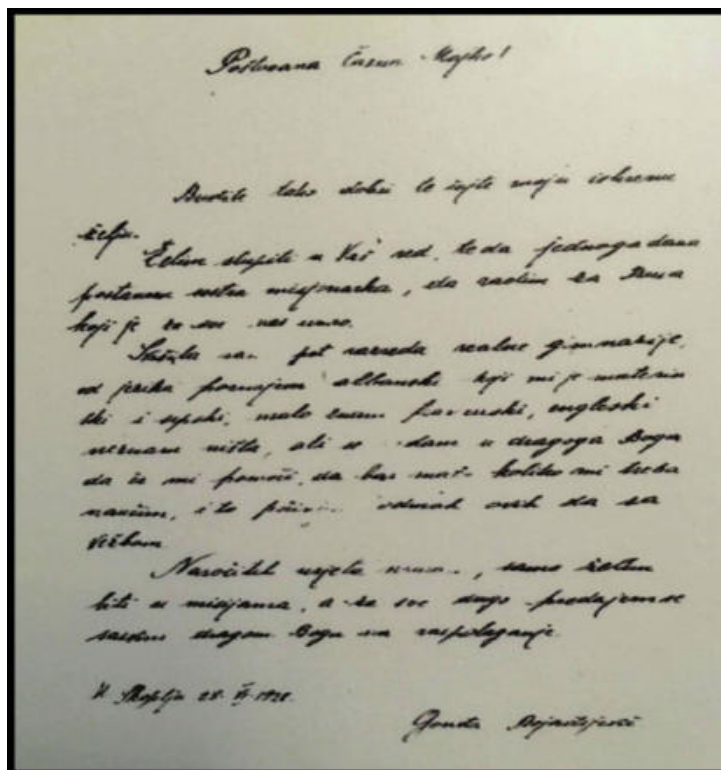 Poštovana Časna Majko!
Budite tako dobri te čujte moju iskrenu
želju.
Želim stupiti u Vaš red, te da jednoga dana
postanem sestra misjonarka, da radim za Isusa
koji je za sve nas umro.
Svršila sam pet razreda realne gimnazije,
od jezika poznajem albanski koji mi je materin
ski i srpski, malo znam francuski, engleski
neznam ništa, ali u dragoga Boga
da će mi pomoći, da bar malo koliko mi treba
naučim, i to odmah ovih da sa
vežbam
Naročitih uvjeta , samo želim
biti u misijama, a za sve drugo predajem se
sasvim dragom Bogu na raspolaganje.
U Skoplju 28. VI. 1928.
Gonđa Bojadžijević